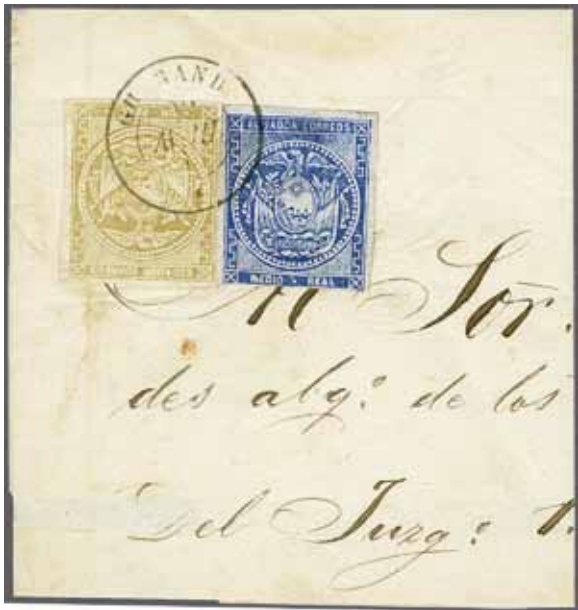 ECUADOR CORREOS
MEDIO REAL
Al Sor.
des alg.º de los
Del Juzg.º 1.